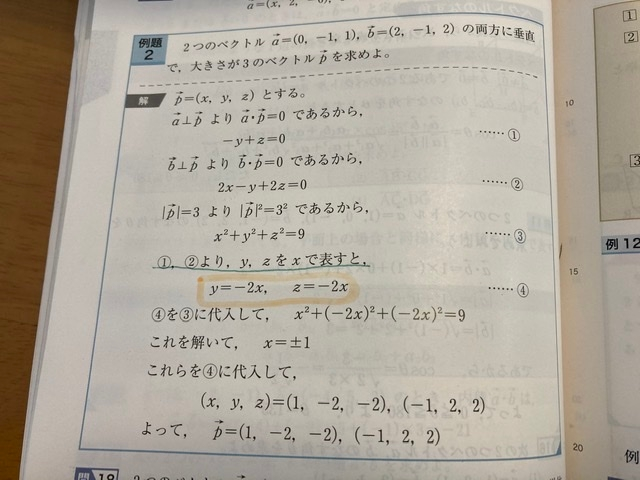 a=(x, 2,
例題
2
2つのベクトル a⃗=(0, −1, 1), b⃗=(2, −1, 2) の両方に垂直
で，大きさが3のベクトル p⃗ を求めよ。
解 p⃗=(x, y, z) とする。
a⃗⊥p⃗ より a⃗・p⃗=0 であるから，
−y+z=0 ……①
b⃗⊥p⃗ より b⃗・p⃗=0 であるから，
2x−y+2z=0 ……②
|p⃗|=3 より |p⃗|²=3² であるから，
x²+y²+z²=9 ……③
①，②より，y, z を x で表すと，
y=−2x, z=−2x ……④
④を③に代入して， x²+(−2x)²+(−2x)²=9
これを解いて， x=±1
これらを④に代入して，
(x, y, z)=(1, −2, −2), (−1, 2, 2)
よって， p⃗=(1, −2, −2), (−1, 2, 2)
10
15
20
1
2
3
例 12
例